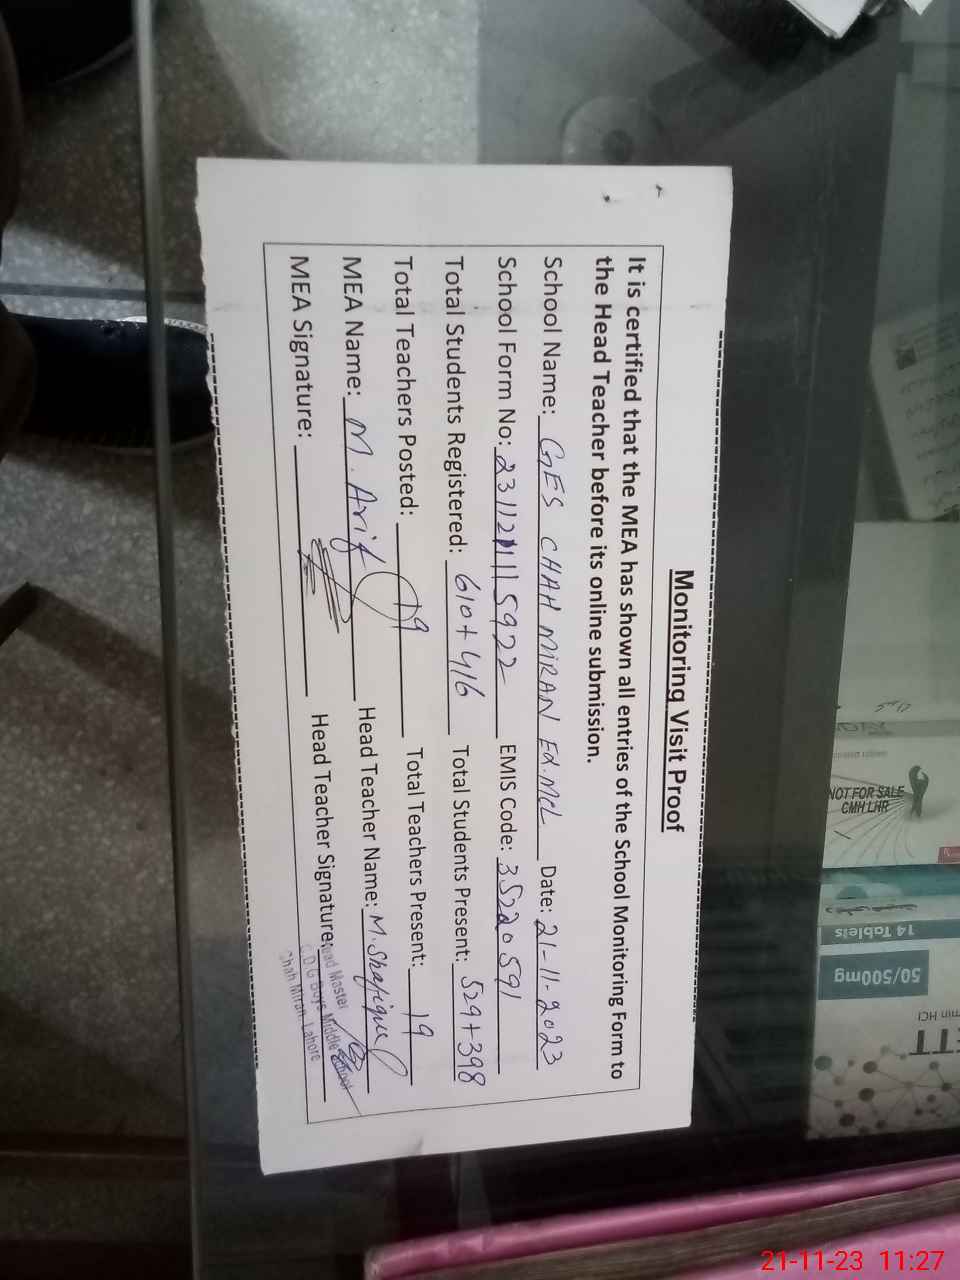 Monitoring Visit Proof
It is certified that the MEA has shown all entries of the School Monitoring Form to
the Head Teacher before its online submission.
School Name: GES CHAH MIRAN Ed.MCL Date: 21-11-2023
School Form No: 231121115922 EMIS Code: 35220591
Total Students Registered: 610+416 Total Students Present: 529+398
Total Teachers Posted: 19 Total Teachers Present: 19
MEA Name: M. Arif Head Teacher Name: M. Shafique
MEA Signature: Head Teacher Signature:
Head Master
C.D.G Boys Middle School
Chah Miran, Lahore
NOT FOR SALE
CMH LHR
14 Tablets
50/500mg
min HCl
ETT
21-11-23 11:27